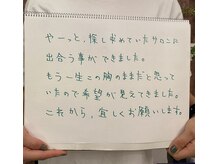 やーっと、探し求めていたサロンに
出合う事ができました。
もう一生この胸のままだと思って
いたので希望が見えてきました。
これから、宜しくお願いします。